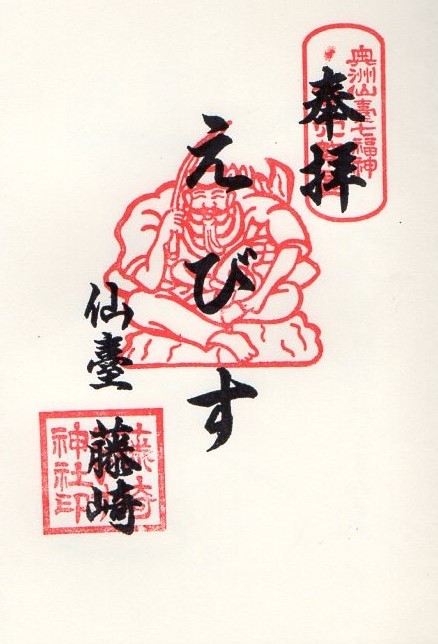 奥洲仙臺七福神
奉拝
えびす
仙臺 藤崎
藤崎
神社印